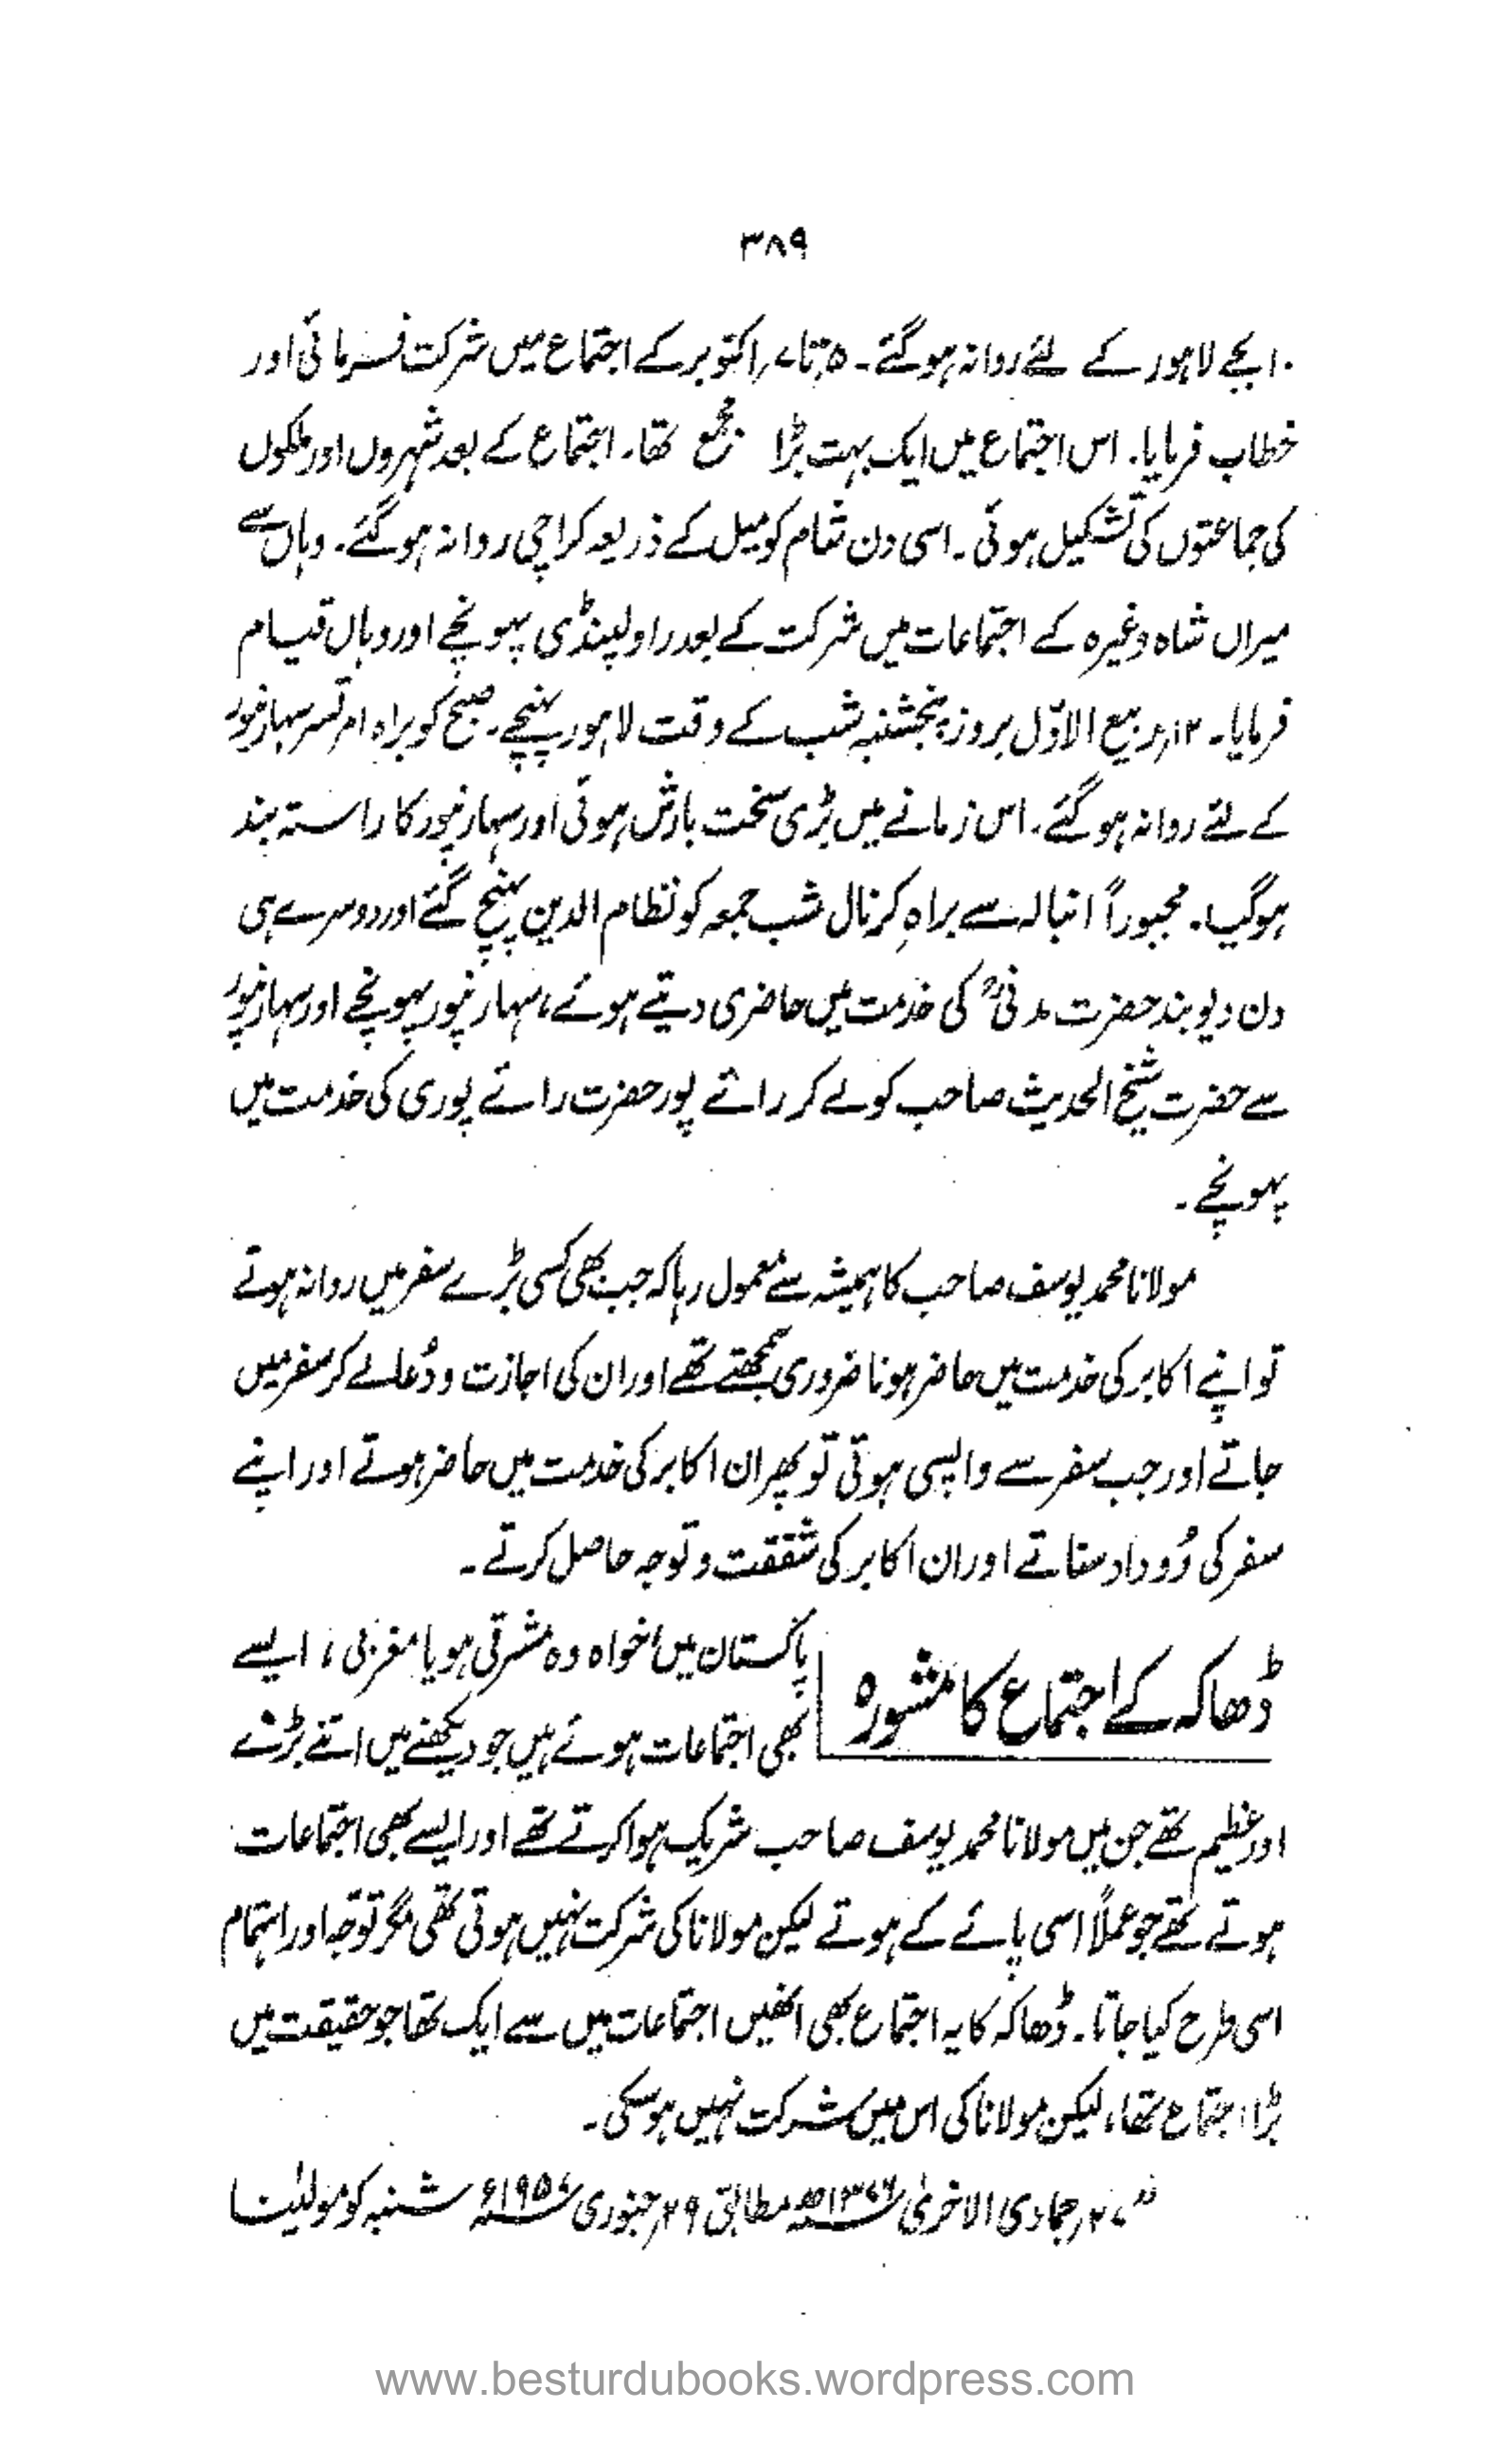 ۳۸۹
۱۰ بجے لاہور کے لئے روانہ ہوگئے۔ ۵ تا ۷ اکتوبر کے اجتماع میں شرکت فرمائی اور
خطاب فرمایا۔ اس اجتماع میں ایک بہت بڑا مجمع تھا۔ اجتماع کے بعد شہروں اور ملکوں
کی جماعتوں کی تشکیل ہوئی۔ اسی دن شام کو میل کے ذریعہ کراچی روانہ ہوگئے۔ وہاں سے
میراں شاہ وغیرہ کے اجتماعات میں شرکت کے بعد راولپنڈی پہونچے اور وہاں قیام
فرمایا۔ ۱۲ ربیع الاوّل بروز پنجشنبہ شب کے وقت لاہور پہنچے۔ صبح کو براہ امرتسر سہارنپور
کے لئے روانہ ہوگئے۔ اس زمانے میں بڑی سخت بارش ہوئی اور سہارنپور کا راستہ بند
ہوگیا۔ مجبوراً انبالہ سے براہِ کرنال شب جمعہ کو نظام الدین پہنچ گئے اور دوسرے ہی
دن دیوبند حضرت مدنیؒ کی خدمت میں حاضری دیتے ہوئے، سہارنپور پہونچے اور سہارنپور
سے حضرت شیخ الحدیث صاحب کو لے کر رائے پور حضرت رائے پوری کی خدمت میں
پہونچے۔
مولانا محمد یوسف صاحب کا ہمیشہ سے معمول رہا کہ جب بھی کسی بڑے سفر میں روانہ ہوتے
تو اپنے اکابر کی خدمت میں حاضر ہونا ضروری سمجھتے تھے اور ان کی اجازت و دُعا لے کر سفر میں
جاتے اور جب سفر سے واپسی ہوتی تو پھر ان اکابر کی خدمت میں حاضر ہوتے اور اپنے
سفر کی رُوداد سناتے اور ان اکابر کی شفقت و توجہ حاصل کرتے۔
ڈھاکہ کے اجتماع کا مشورہ
پاکستان میں خواہ وہ مشرقی ہو یا مغربی، ایسے
بھی اجتماعات ہوئے ہیں جو دیکھنے میں اتنے بڑے
اور عظیم تھے جن میں مولانا محمد یوسف صاحب شریک ہوا کرتے تھے اور ایسے بھی اجتماعات
ہوتے تھے جو عملاً اسی پائے کے ہوتے لیکن مولانا کی شرکت نہیں ہوتی تھی مگر توجّہ اور اہتمام
اسی طرح کیا جاتا۔ ڈھاکہ کا یہ اجتماع بھی انھیں اجتماعات میں سے ایک تھا جو حقیقت میں
بڑا اجتماع تھا، لیکن مولانا کی اس میں شرکت نہیں ہوسکی۔
"۲۷ جمادی الاخریٰ ۱۳۷۶ھ مطابق ۲۹ جنوری ۱۹۵۷ء شنبہ کو مولینا
www.besturdubooks.wordpress.com